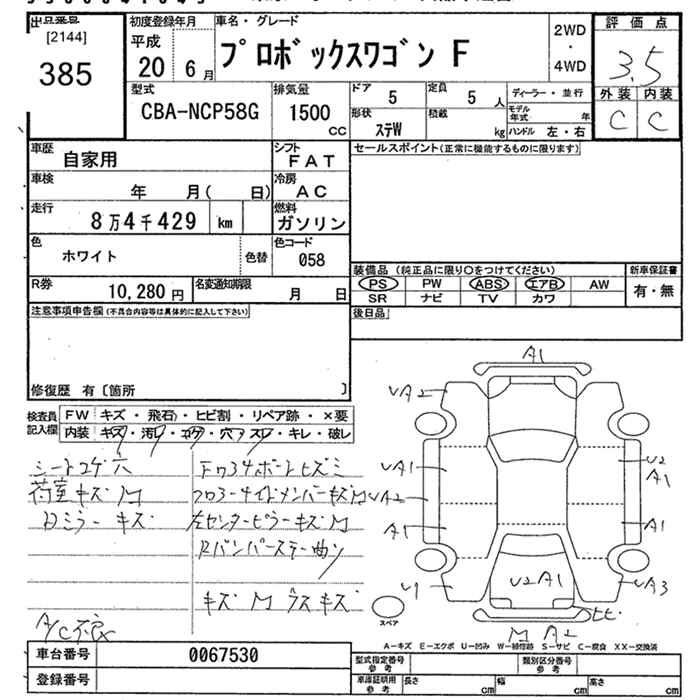 出品番号
[2144]
385
初度登録年月
平成
20 6月
車名・グレード
プロボックスワゴン F
2WD
・
4WD
評価点
3.5
外装 内装
C C
型式
CBA-NCP58G
排気量
1500
CC
ドア
5
定員
5 人
形状
ステW
積載
kg
ディーラー・並行
モデル年式 年
ハンドル 左・右
車歴
自家用
シフト
FAT
車検
年 月( 日)
冷房
AC
走行
8万4千429 km
燃料
ガソリン
色
ホワイト
色替
色コード
058
R券
10,280円
名変通知期限
月 日
セールスポイント(正常に機能するものに限ります)
装備品 (純正品に限り○をつけてください)
PS PW ABS エアB AW
SR ナビ TV カワ
新車保証書
有・無
後日品
注意事項申告欄(不具合内容等は具体的に記入して下さい)
修復歴 有〔箇所 〕
検査員
記入欄
FW キズ・飛石・ヒビ割・リペア跡・×要
内装 キズ・汚レ・コゲ・穴・スレ・キレ・破レ
シートコゲ穴
荷室キズM
Dミラーキズ
フロアサイドメンバーキズM
左センターピラーキズM
Rバンパーステー曲り
キズM ラスキズ
A/C不良
A1
UA2
UA1
UA2
A1
U1
U2
A1
A1
UA3
U2A1
ヒビ
M A2
スペア
A-キズ E-エクボ U-凹み W-補修跡 S-サビ C-腐食 XX-交換済
車台番号
0067530
登録番号
型式指定番号
参考
類別区分番号
参考
車庫証明用
参考
長さ cm
幅 cm
高さ cm